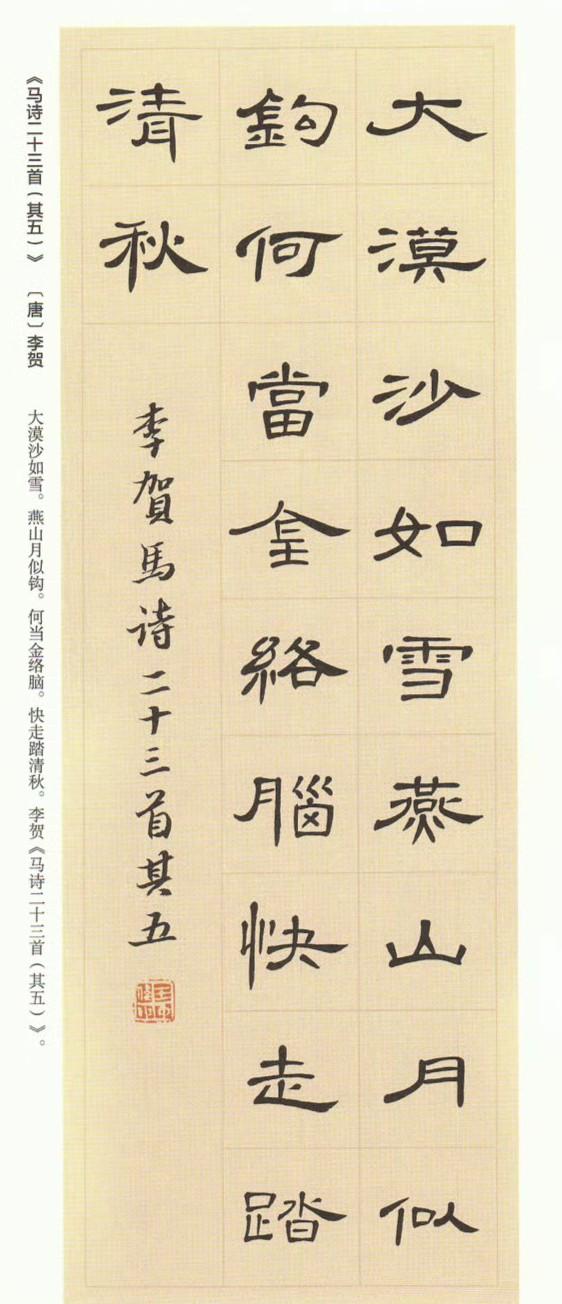 大漠沙如雪燕山月似
鈎何當金絡腦快走踏
清秋
李賀馬诗二十三首其五
《马诗二十三首（其五）》 〔唐〕李贺 大漠沙如雪。燕山月似钩。何当金络脑。快走踏清秋。李贺《马诗二十三首（其五）》。